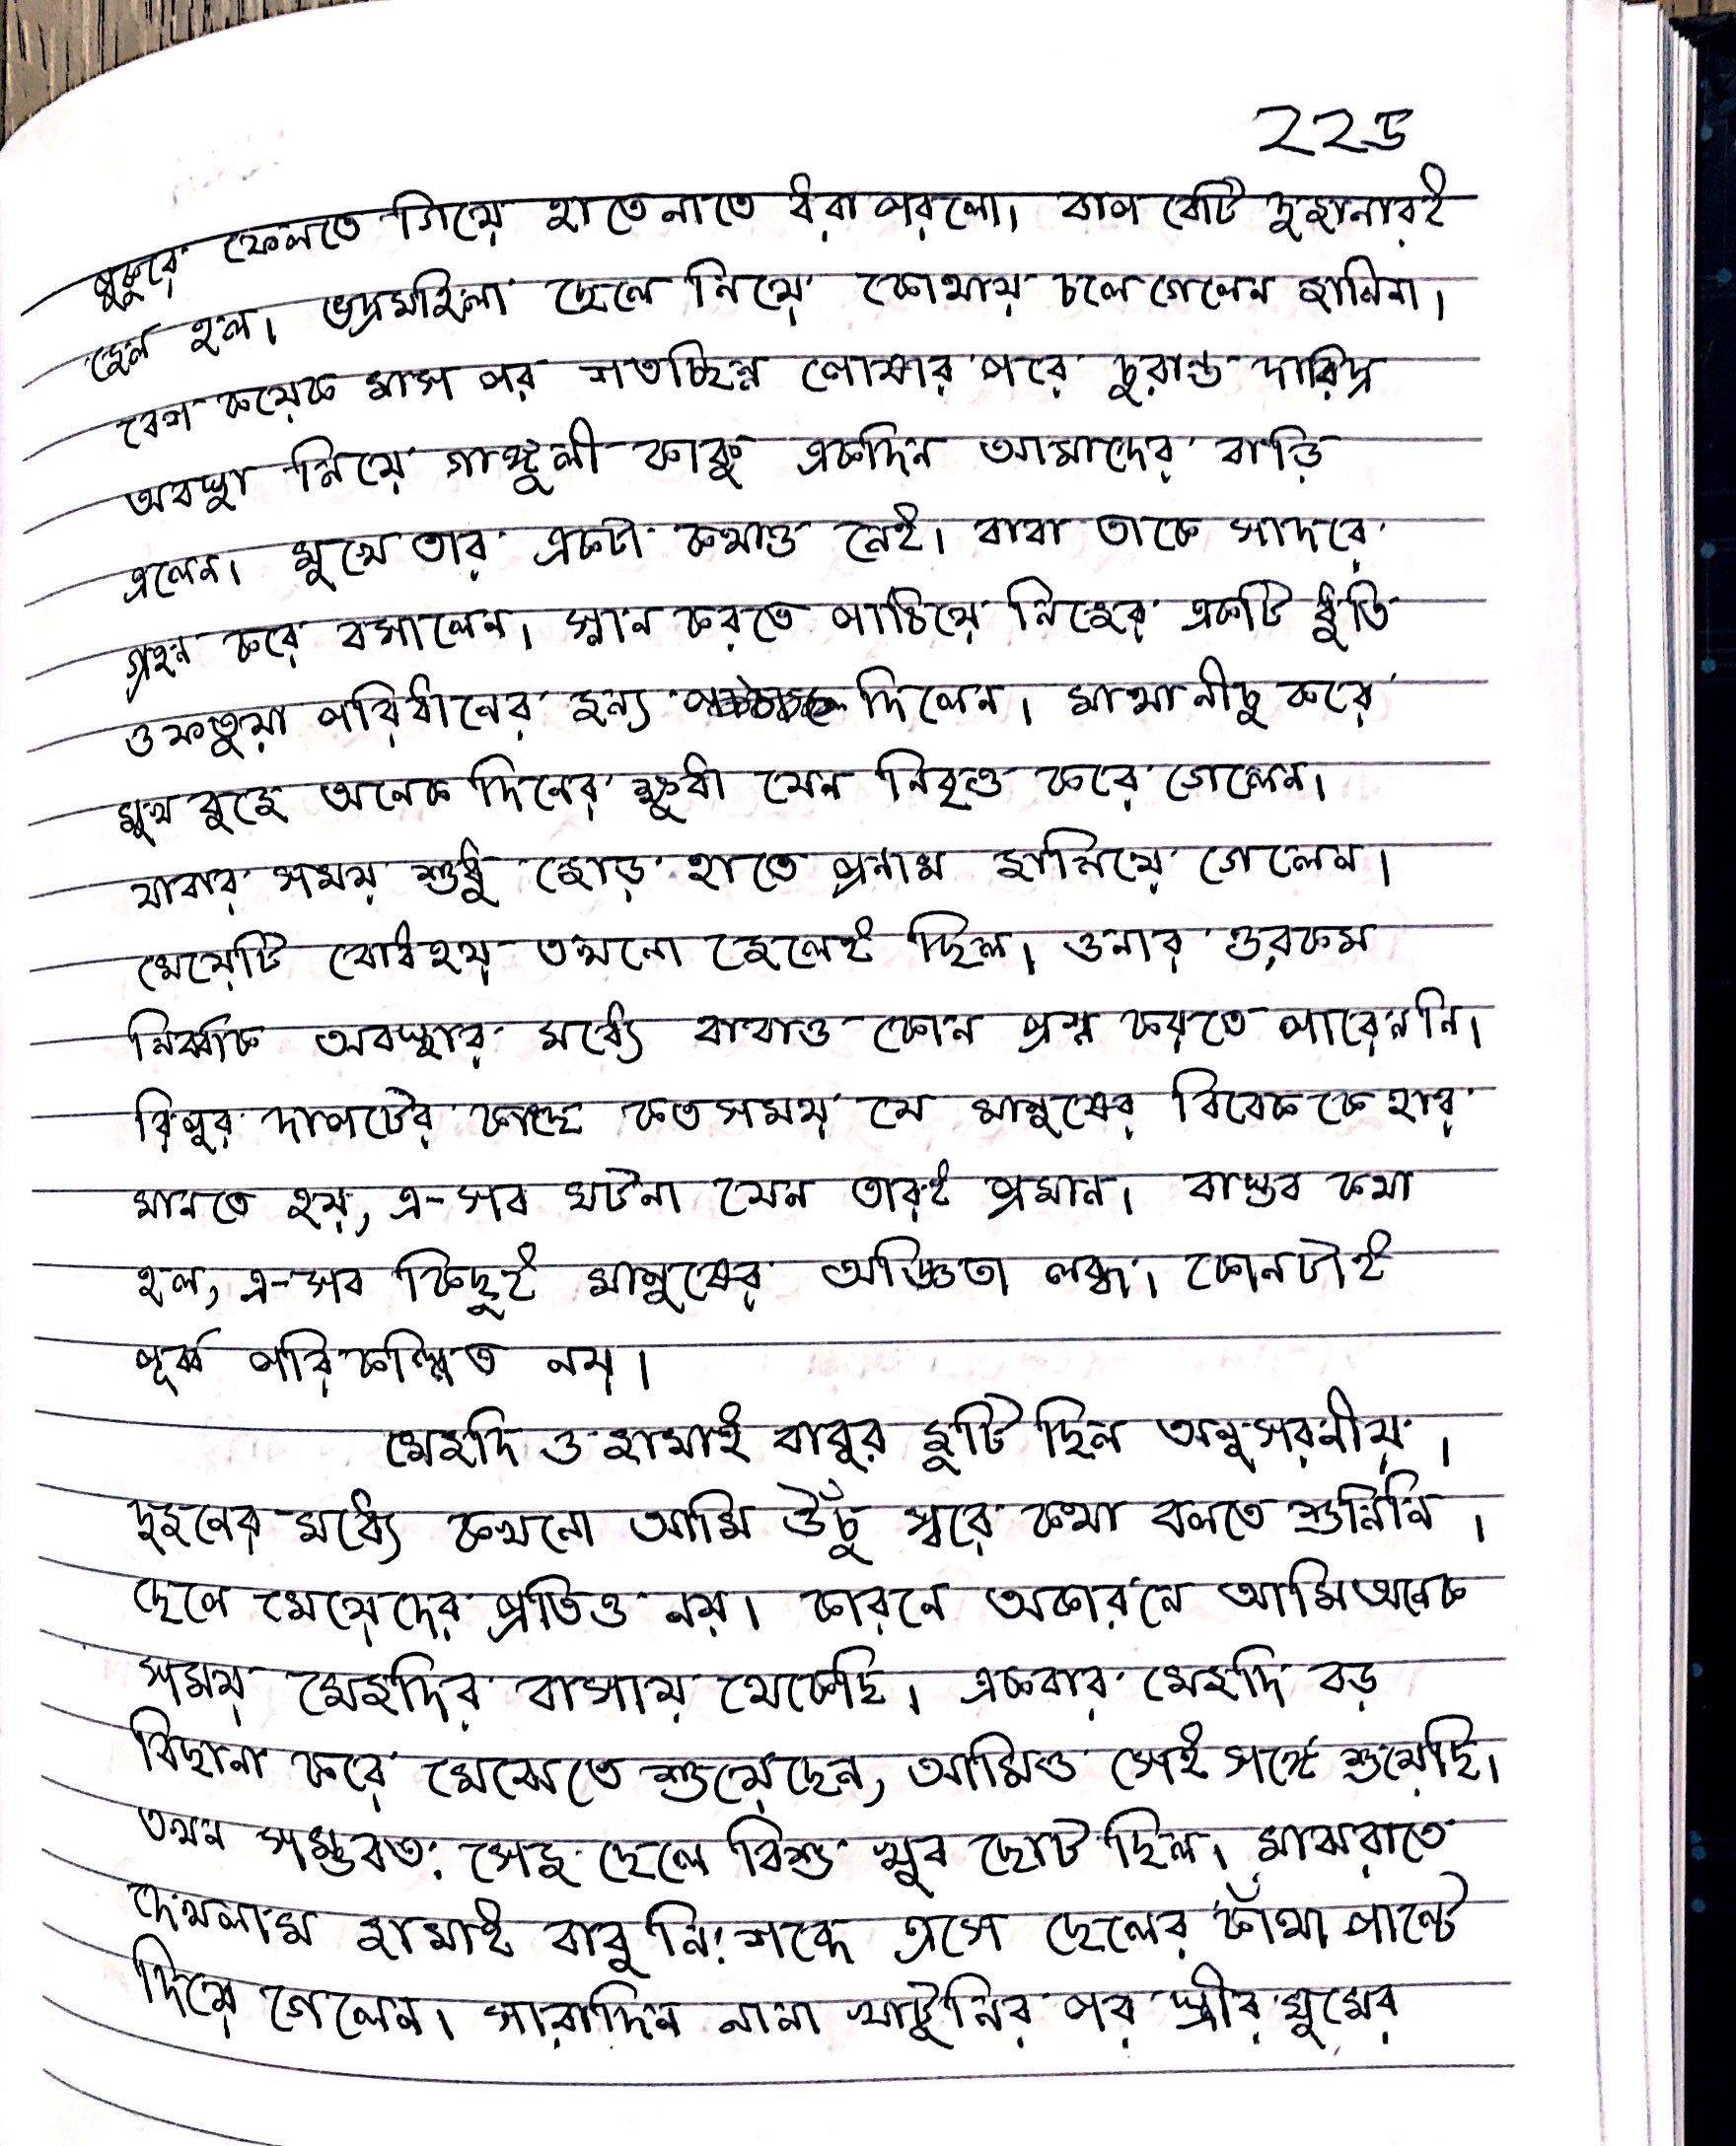 ২২৬
পুকুরে ফেলতে গিয়ে হাতেনাতে ধরা পরলো। বাপ বেটি দুজনারই
জেল হল। ভদ্রমহিলা ছেলে নিয়ে কোথায় চলে গেলেন জানিনা।
বেশ কয়েক মাস পর শতচ্ছিন্ন পোষার পরে চুরান্ত দারিদ্র
অবস্থা নিয়ে গাঙ্গুলী কাকু একদিন আমাদের বাড়ি
এলেন। মুখে তার একটা কথাও নেই। বাবা তাকে সাদরে
গ্রহন করে বসালেন। স্নান করতে পাঠিয়ে নিজের একটি ধুতি
ও ফতুয়া পরিধানের জন্য দিলেন। মাথা নীচু করে
মুখ বুজে অনেক দিনের ক্ষুধা যেন নিবৃত্ত করে গেলেন।
যাবার সময় শুধু জোড় হাতে প্রনাম জানিয়ে গেলেন।
মেয়েটি বোধহয় তখনো জেলেই ছিল। ওনার ওরকম
নির্ব্বাক অবস্থার মধ্যে বাবাও কোন প্রশ্ন করতে পারেননি।
রিপুর দাপটের কাছে কত সময় যে মানুষের বিবেককে হার
মানতে হয়, এ-সব ঘটনা যেন তারই প্রমান। বাস্তব কথা
হল, এ-সব কিছুই মানুষের অভিজ্ঞতা লব্ধ। কোনটাই
পূর্ব্ব পরিকল্পিত নয়।
মেজদি ও জামাই বাবুর জুটি ছিল অনুসরনীয়।
দুজনের মধ্যে কখনো আমি উঁচু স্বরে কথা বলতে শুনিনি।
ছেলে মেয়েদের প্রতিও নয়। কারনে অকারনে আমি অনেক
সময় মেজদির বাসায় থেকেছি। একবার মেজদি বড়
বিছানা করে মেঝেতে শুয়েছেন, আমিও সেই সঙ্গে শুয়েছি।
তখন সম্ভবত: সেজ ছেলে বিশু খুব ছোট ছিল। মাঝরাতে
দেখলাম জামাই বাবু নি:শব্দে এসে ছেলের কাঁথা পাল্টে
দিয়ে গেলেন। সারাদিন নানা খাটুনির পর স্ত্রীর ঘুমের